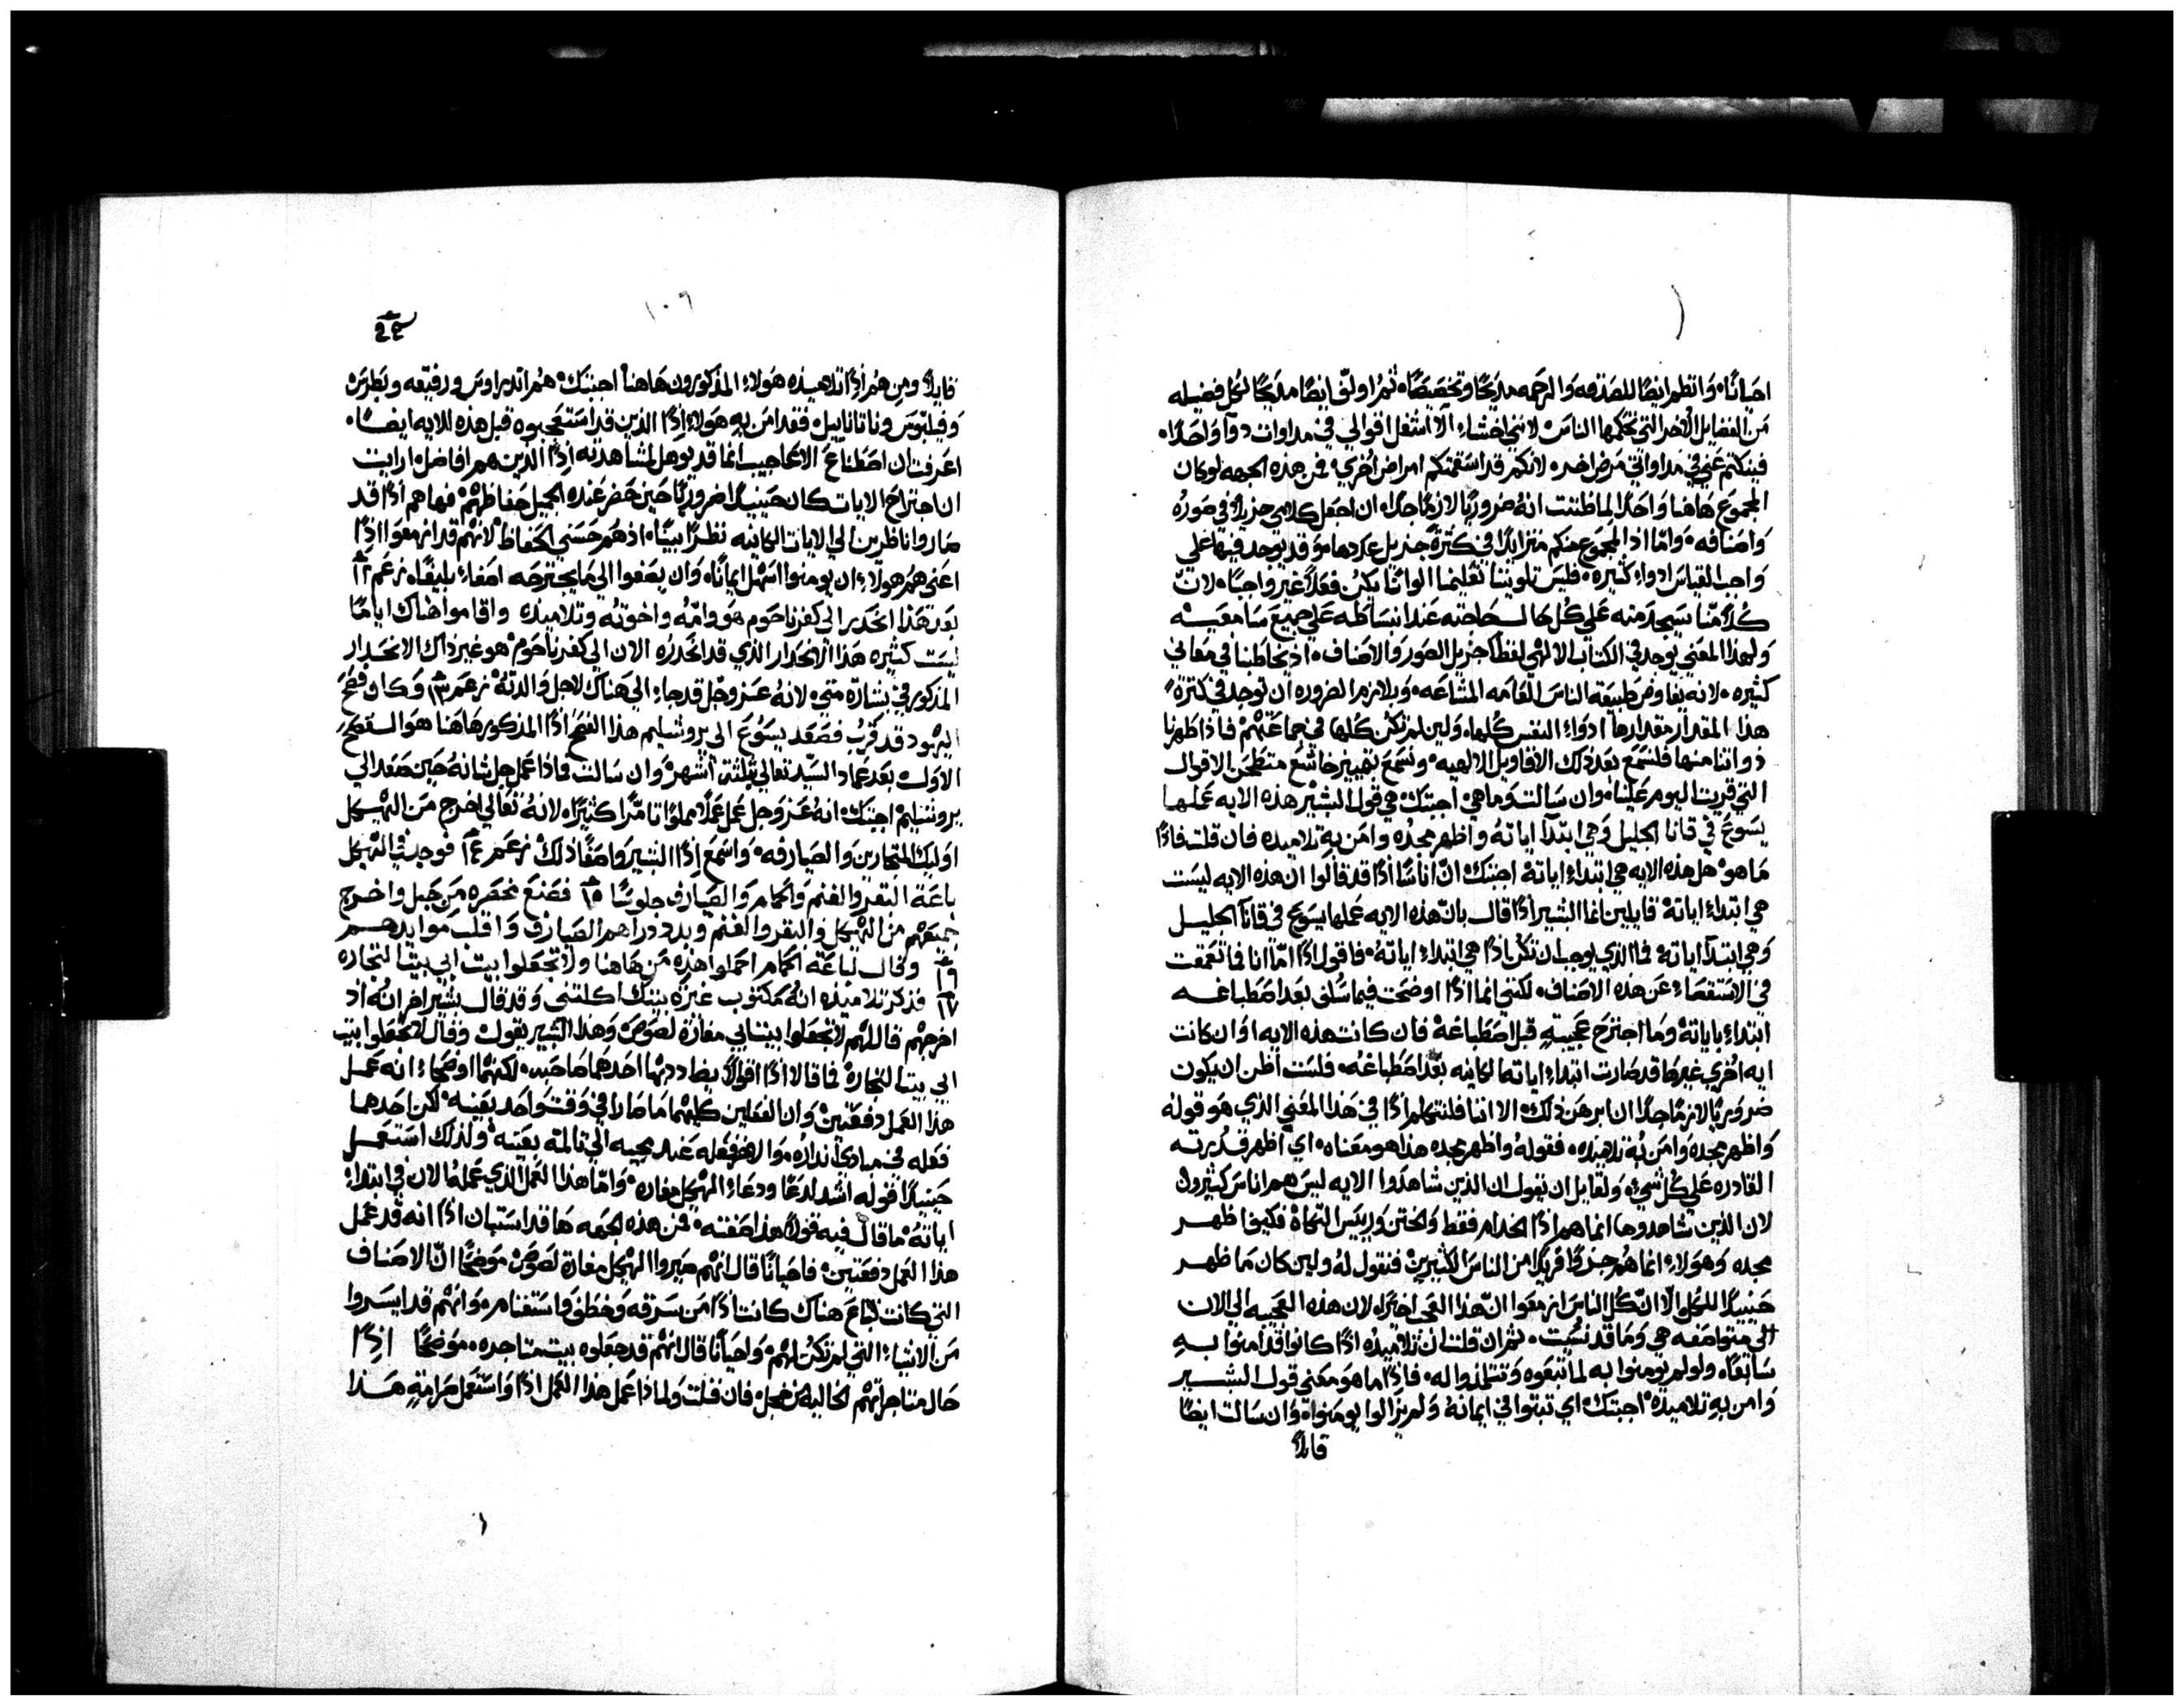 احيانًا، وانظم ايضًا للصدقه والرحمه مديحًا وتخصصًا، ثم اولّف ايضًا مديحًا لكل فضيله
من الفضايل الاُخر التي تحكمها الناس، لانني اخشا الا اشغل اقوالي في مداوات دوآ واحدًا،
فينكتم عني في مداواتي مرض اخر، لانكم قد اسقمتكم امراض اُخري، فمن هذه الجهه لو كان
المجموع هاهنا واحدًا لما ظننت انه ضروريًا لازمًا جدًا، ان اجعل كلامي جزيلاً في صوره
واصنافه، وامّا اذ المجموع منكم متزايدًا في كثرة جزيل عددها، وقد توجد فيها علي
واجب القياس ادواء كثيره، فليس تلويننا تعليمنا الوانًا يكن فعلاً غير واجبًا، لانّ
كلامنا سيجد منه علي كل حال حاجته عند انبساطه علي جميع سامعيه
ولهذا المعني يوجد في الكتاب الالهي لفظًا جزيل الصور والاصناف، اذ يخاطبنا في معاني
كثيره، لانه يفاوض طبيعة الناس العامه المشاعه، وبلازم الضروره ان توجد في كثرة
هذا المقدار مقدارها ادواء النفس كلها، ولين لم تكن كلها في جماعتهم فاذا طهرنا
ذواتنا منها فلنسمع بعد ذلك الاقاويل الالهيه، ونسمع بتمييز خاشع منطحن الاقوال
التي قريت اليوم علينا، وان سالت وما هي، اجبتك هي قول البشير هذه الايه عملها
يسوع في قانا الجليل وهي ابتدآ اياته واظهر مجده وامن به تلاميده فان قلت فاذًا
ما هو هل هذه الايه هي ابتداء اياته اجبتك انّ اناسًا اذًا قد قالوا ان هذه الايه ليست
هي ابتداء اياته قايلين انما البشير اذًا قال بانّ هذه الايه عملها يسوع في قانآ الجليل
وهي ابتدآ اياته فما الذي يوجب ان تكن اذًا هي ابتداء اياته، فاقول اذًا امّا انا فما تعمقت
في الاستقصاء عن هذه الاصناف، لكنني انما اذًا اوضحت فيما سلف بعد اصطباغه
ابتداء باياته وما اجترح عجيبةٍ قبل اصطباغة فان كانت هذه الايه او ان كانت
ايه اُخري غيرها قد صارت ابتداء اياته الكاينه بعد اصطباغه، فلست اظن ان يكون
ضروريًا لازمًا جدًا ان ابرهن ذلك، الا اننا فلنتكلم اذًا في هذا المعني الذي هو قوله
واظهر مجده وامن به تلاميده، فقوله واظهر مجده هذا هو معناه، اي اظهر قدرته
القادره علي كل شيء ولقايل ان يقول ان الذين شاهدوا الايه ليس هم اناس كثيرون
لان الذين شاهدوها انما هم اذًا الخدام فقط والختن ورييس التكاة فكيف اظهر
مجده وهولاء انما هم جزوًا قريبًا من الناس الكثيرين فنقول له ولين كان ما ظهر
حينيذًا للكل الا انّ كل الناس ازمعوا ان هذا العجب اخيرًا، لان هذه العجيبه الي الان
الي متواصفه هي وما قد نُسيت، ثم ان قلت ان تلاميده اذًا كانوا قد امنوا به
سابقًا، ولو لم يومنوا به لما تبعوه وتتلمذوا له، فاذًا ما هو معني قول البشير
وامن به تلاميده، اجبتك اي تبتوا في ايمانه ولم يزالوا يومنوا، وان سالت ايضًا
قايلاً
١٠٩
قايلاً ومن هُم اذًا تلاميذه هولاء المذكورون هاهنا اجبتك، هم اندراوس ورفيقه وبطرس
وفيلبّوس وناتاناييل، فقد امن به هولاء اذًا الذين قد استعجبوه قبل هذه الايه ايضًا،
اعرفت ان اصطناع الاعاجيب انما قد يوهل لمشاهدته اذًا الذين هم افاضل، ارايت
ان اجتراح الايات كان حينيذًا ضروريًا حين حضر عنده الجميل حفاظهم، فها هم اذًا قد
صاروا ناظرين الي الايات الكاينه نظرًا بينًا، اذ هم حسني الحفاظ، لانهم قد ازمعوا اذًا
اعني هم هولاء ان يومنوا اسهل ايمانًا، وان يصغوا الي ما يجترحه اصغاء بليغًا، زعم ١٢
بعد هذا انحدر الي كفرناحوم هو وامّه واخوته وتلاميذه واقاموا هناك ايامًا
ليست كثيره هذا الانحدار الذي قد انحدره الان الي كفرناحوم هو غير ذاك الانحدار
المذكور في بشارة متي، لانه عز وجل قد جاء الي هناك لاجل والدته، زعم ١٣ وكان فصح
اليهود قد قرب فصعد يسوع الي يروشليم هذا الفصح اذًا المذكور هاهنا هو الفصح
الاول بعد عماد السيد تعالي بثلثة اشهر، وان سالت فماذا عمل جل شانه حين صعد الي
يروشليم اجبتك، انه عز وجل عمل عملاً مملوًا تامرًا كثيرًا، لانه تعالي اخرج من الهيكل
اوليك المتجارين والصيارفه، واسمع اذًا البشير واصفًا ذلك، زعم ١٤ فوجد في الهيكل
باعة البقر والغنم والحمام والصيارف جلوسًا ١٥ فصنع مخصره من حبل واخرج
جميعهم من الهيكل والبقر والغنم وبدد دراهم الصيارف واقلب موايدهم
١٦ وقال لباعة الحمام احملوا هذه من هاهنا ولا تجعلوا بيت ابي بيت التجاره
١٧ فذكر تلاميذه انه مكتوب غيرة بيتك اكلتني وقد قال بشير اخر انه اذ
اخرجهم قال لهم لا تجعلوا بيت ابي مغارة لصوص، وهذا البشير يقول، وقال لا تجعلوا بيت
ابي بيت التجاره فما قالا اذًا اقوالاً يضاددبها احدهما صاحبه، لكنهما اوضحا، انه عمل
هذا العمل دفعتين، وان الفعلين كليهما ما صارا في وقت واحد بعينه، لكن احدهما
فعله في مبادي انداره، والاخر فعله عند مجيبه الي تالمه بعينه، ولذلك استعمل
حينيذًا قوله اشد لدغًا ودعاء الهيكل مغاره، وامّا هذا العمل الذي عمله الان في ابتداء
اياته ما قال فيه قولاً هذا صفته، فمن هذه الجهه ها قد استبان اذًا انه قد عمل
هذا العمل دفعتين، فاحيانًا قال انهم صيروا الهيكل مغارة لصوص، موضحًا انّ الاصناف
التي كانت تُباع هناك كانت اذًا من سرقه وخطف واستغنام، وانهم قد ايسروا
من الاشياء التي لم تكن لهم، واحيانًا قال انهم قد جعلوه بيت متاجره، موضحًا اذًا
حال متاجراتهم الخاليه من خجل فان قلت ولماذا عمل هذا العمل اذًا واستعمل صرامةٍ هذا